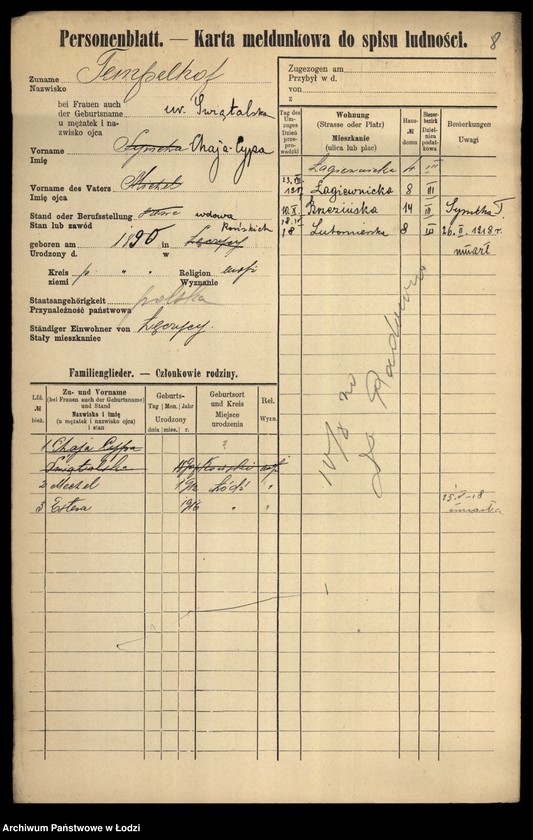 Personenblatt. — Karta meldunkowa do spisu ludności.
8
Zuname Nazwisko Tempelhof
bei Frauen auch der Geburtsname
u mężatek i nazwisko ojca
ur. Świątalska
Vorname Imię Symcha Chaja-Cypa
Vorname des Vaters Mechel
Imię ojca
Stand oder Berufsstellung wdowa
Stan lub zawód
geboren am 1890 in Łęczycy
Urodzony d. w
Kreis p. " " Religion mojż
ziemi Wyznanie
Staatsangehörigkeit polska
Przynależność państwowa
Ständiger Einwohner von Łęczycy.
Stały mieszkaniec
Zugezogen am
Przybył w d.
von
z
Tag des Umzuges
Dzień przeprowadzki
Wohnung
(Strasse oder Platz)
Mieszkanie
(ulica lub plac)
Haus-№ domu
Steuerbezirk
Dzielnica podatkowa
Bemerkungen
Uwagi
Łagiewnicka III
Łagiewnicka 8 III
10.X. Brzezińska 14 III Symcha T.
18 Lutomierska 8 III 26.II.1918 r.
umarł
Familienglieder. — Członkowie rodziny.
Lfd. № bież.
Zu- und Vorname
(bei Frauen auch der Geburtsname)
und Stand
Nazwisko i imię
(u mężatek i nazwisko ojca)
i stan
Geburts-
Tag | Mon. | Jahr
Urodzony
dnia | mies. | r.
Geburtsort
und Kreis
Miejsce
urodzenia
Rel.
Wyzn.
1 Chaja Cypra
Świątalska
2 Mechel 1912 Łódź "
3 Estera 1916 " "
15.V-18
umarła
Archiwum Państwowe w Łodzi